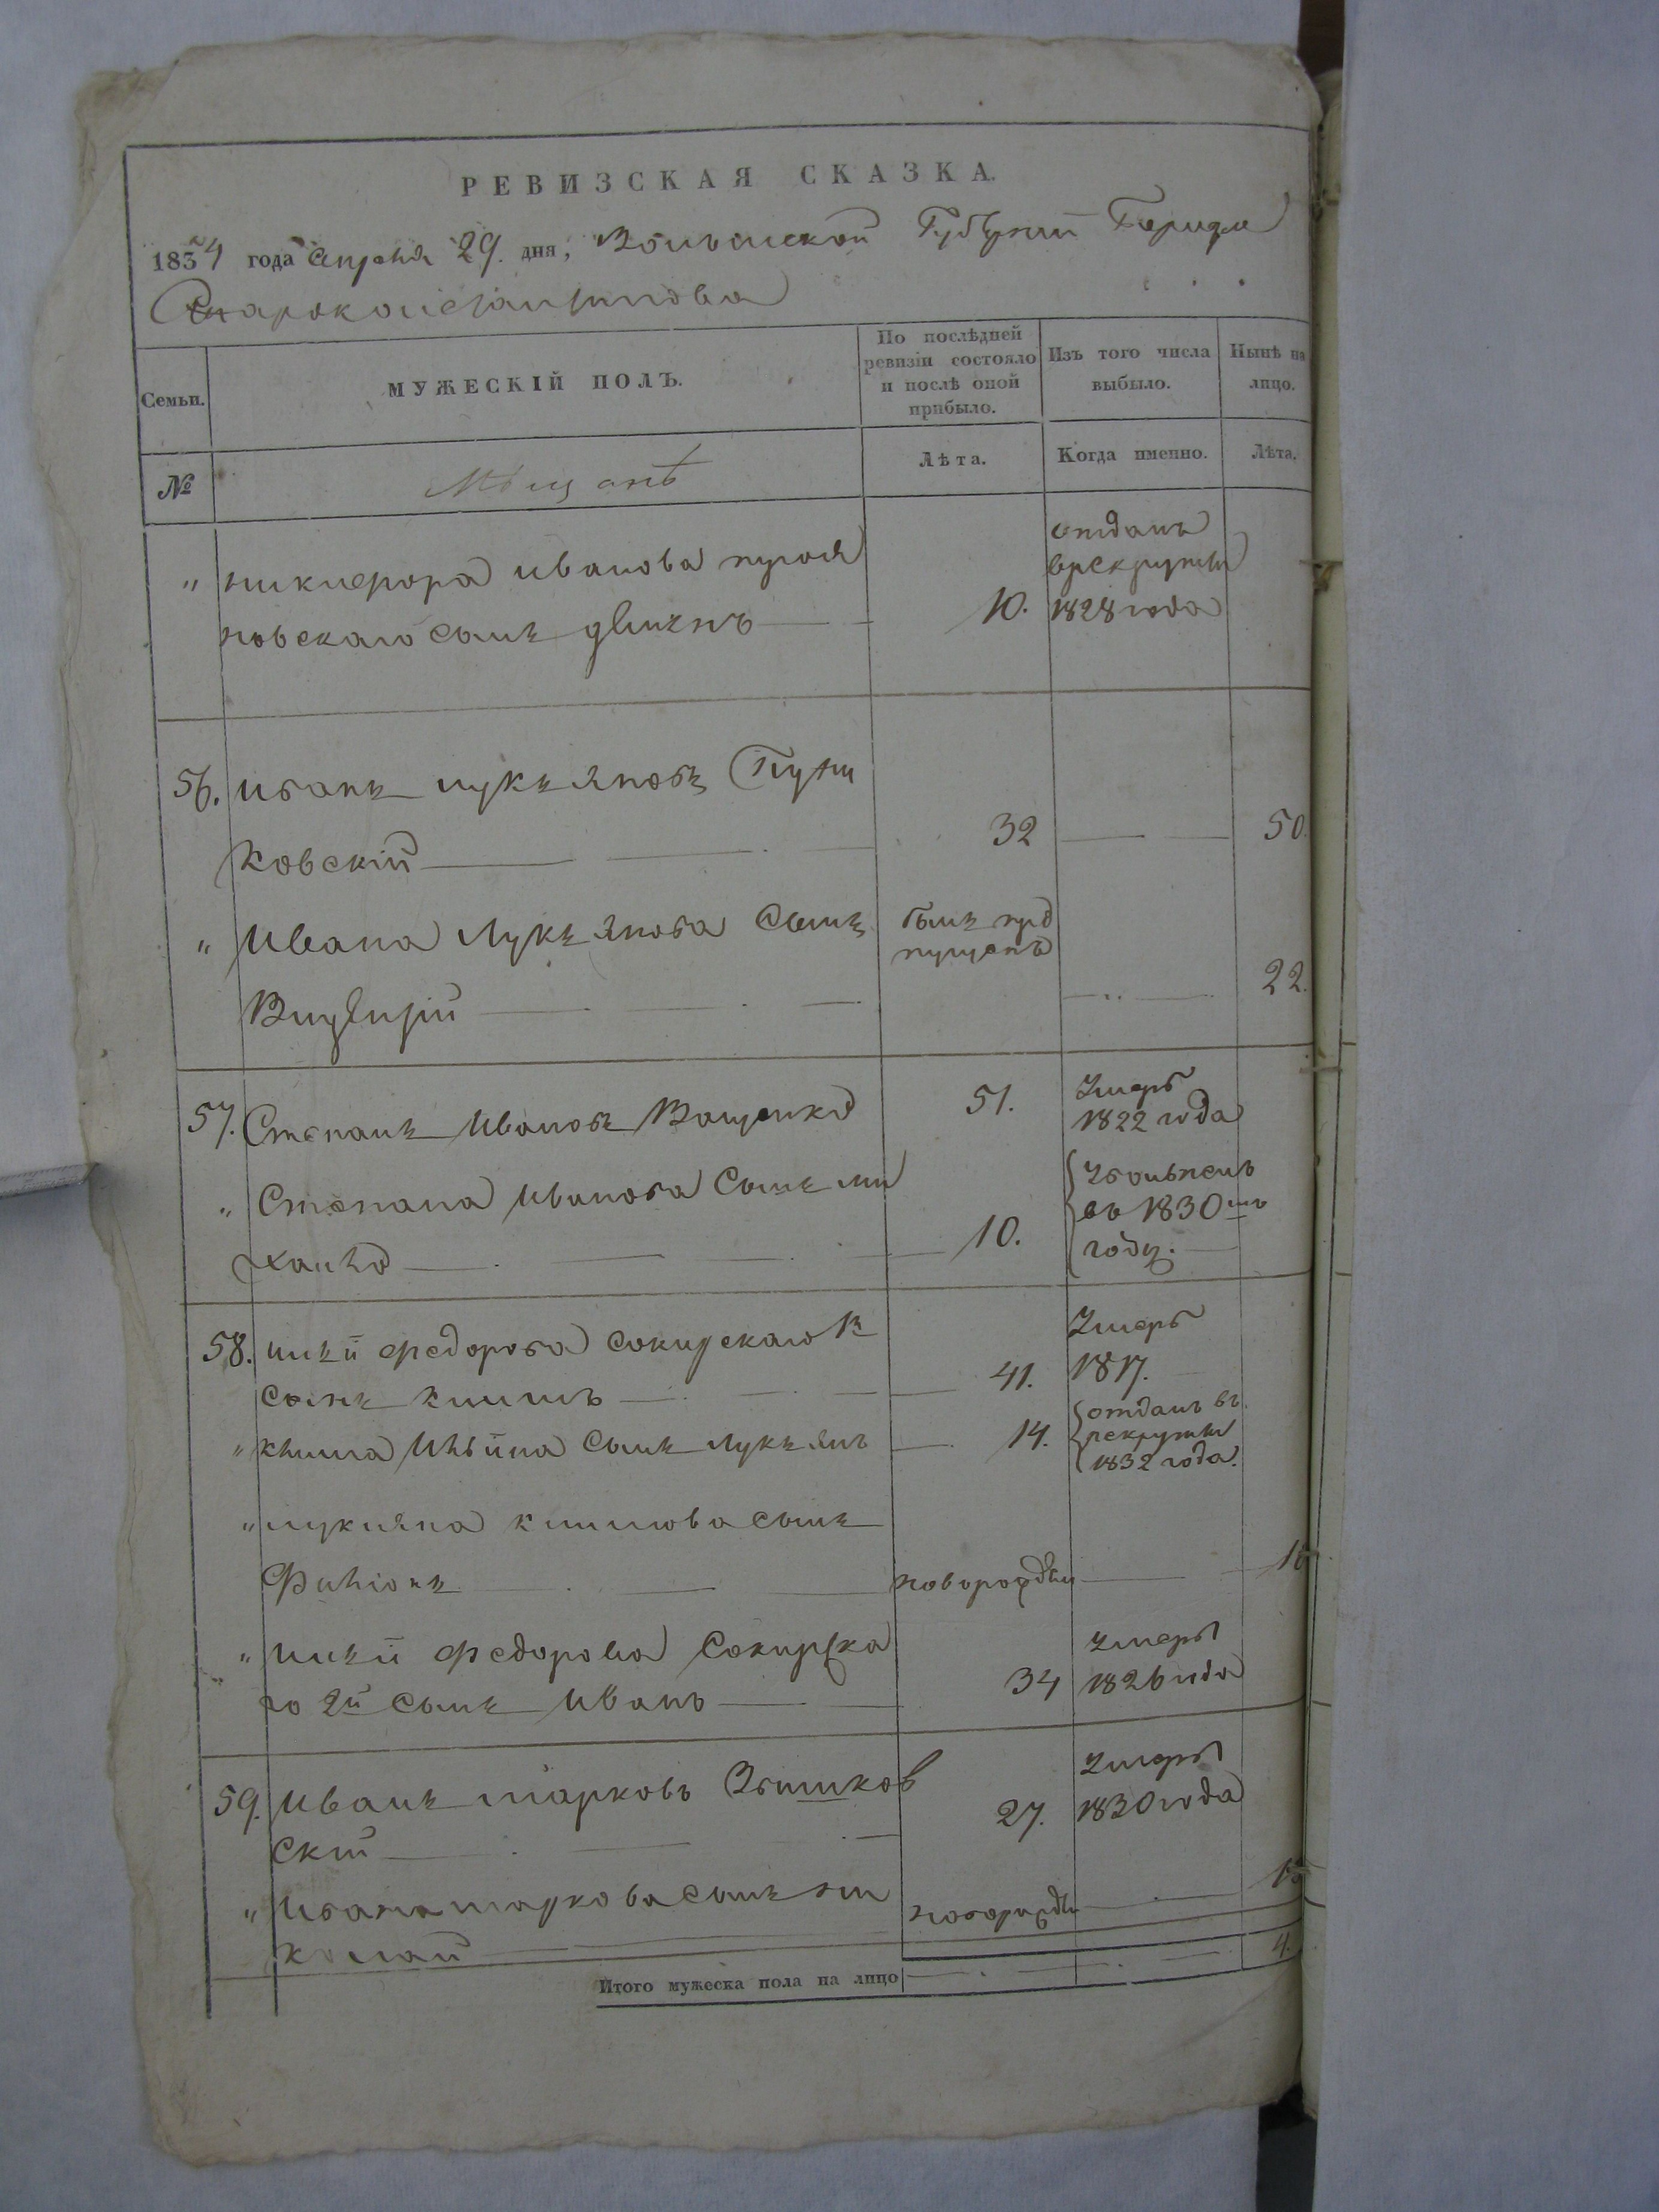 РЕВИЗСКАЯ СКАЗКА.
1834 года апреля 29. дня, Волынской Губернии Города
Староконстантинова
Семьи.
МУЖЕСКІЙ ПОЛЪ.
По послѣдней ревизіи состояло и послѣ оной прибыло.
Изъ того числа выбыло.
Нынѣ на лицо.
№
Мѣщанѣ
Лѣта.
Когда именно.
Лѣта.
" никифора иванова
новскаго сынъ
10.
отданъ
врекруты
1828 года
56. иванъ лукъяновъ
ковскій
32
50.
" Ивана Лукъянова Сынъ
былъ про
пущенъ
22.
57. Степанъ Ивановъ Ващенко
51.
Умеръ
1822 года
" Степана Иванова Сынъ ми
хайло
10.
Уволненъ
въ 1830мъ
году.
58. илъи федорова сокирскаго
сынъ климъ
41.
Умеръ
1817.
" клима Илъина Сынъ лукъянъ
14.
отданъ въ
рекруты
1832 года.
" лукияна климова сынъ
новорожден
16
" илъи федорова Сокирска
го 2й сынъ Иванъ
34
умеръ
1826 года
59. Иванъ марковъ
скій
27.
умеръ
1830 года
" Ивана маркова сынъ ни
колай
новорожден
4.
Итого мужеска пола на лицо